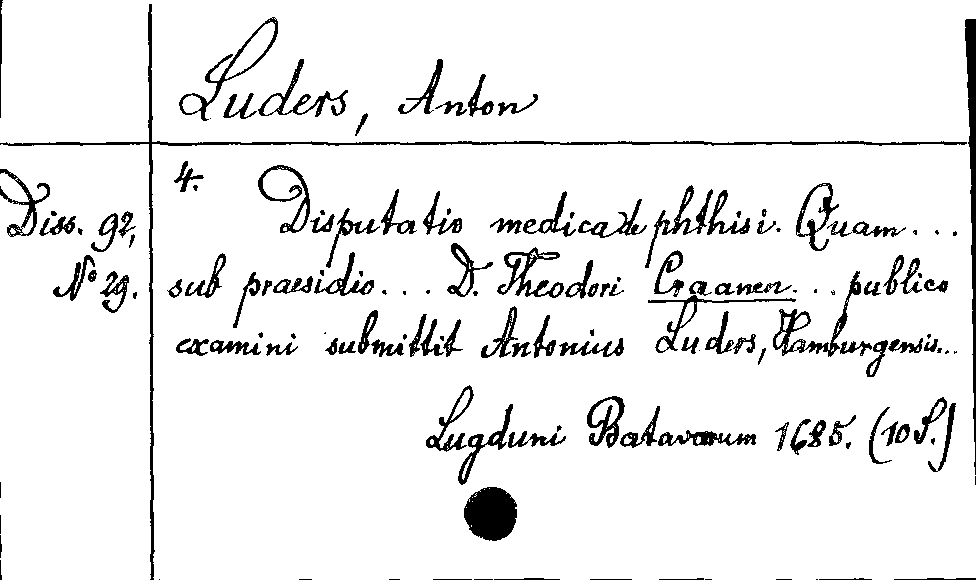 Luders, Anton
4.
Diss. 92, Disputatio medica de phthisi. Quam...
No 29. sub praesidio.... D. Theodori Craanen... publico
examini submittit Antonius Luders, Hamburgensis...
Lugduni Batavorum 1685. (10 S.)